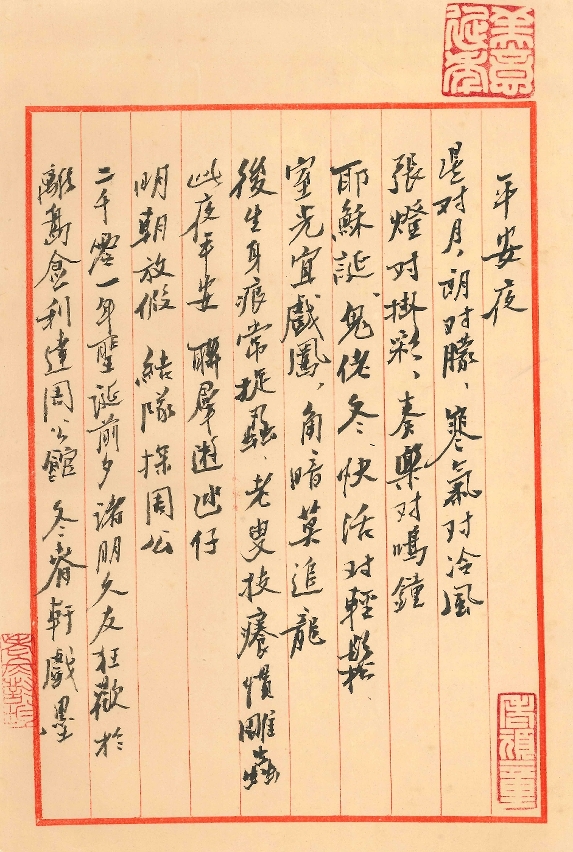 美意延年
平安夜
星对月、朗对朦、寒氣对冷風
張燈对掛彩、奏樂对鳴鐘
耶穌誕、鬼佬冬、快活对輕鬆
室光宜戲鳳、角暗莫追龍
後生身痕常捉蝨、老叟技癢慣雕蟲
此夜平安 聯羣遊氹仔
明朝放假 結隊探周公
二千零一年聖誕前夕諸朋久友狂歡於
離島金利達周公館 冬春軒戲墨
老頑童